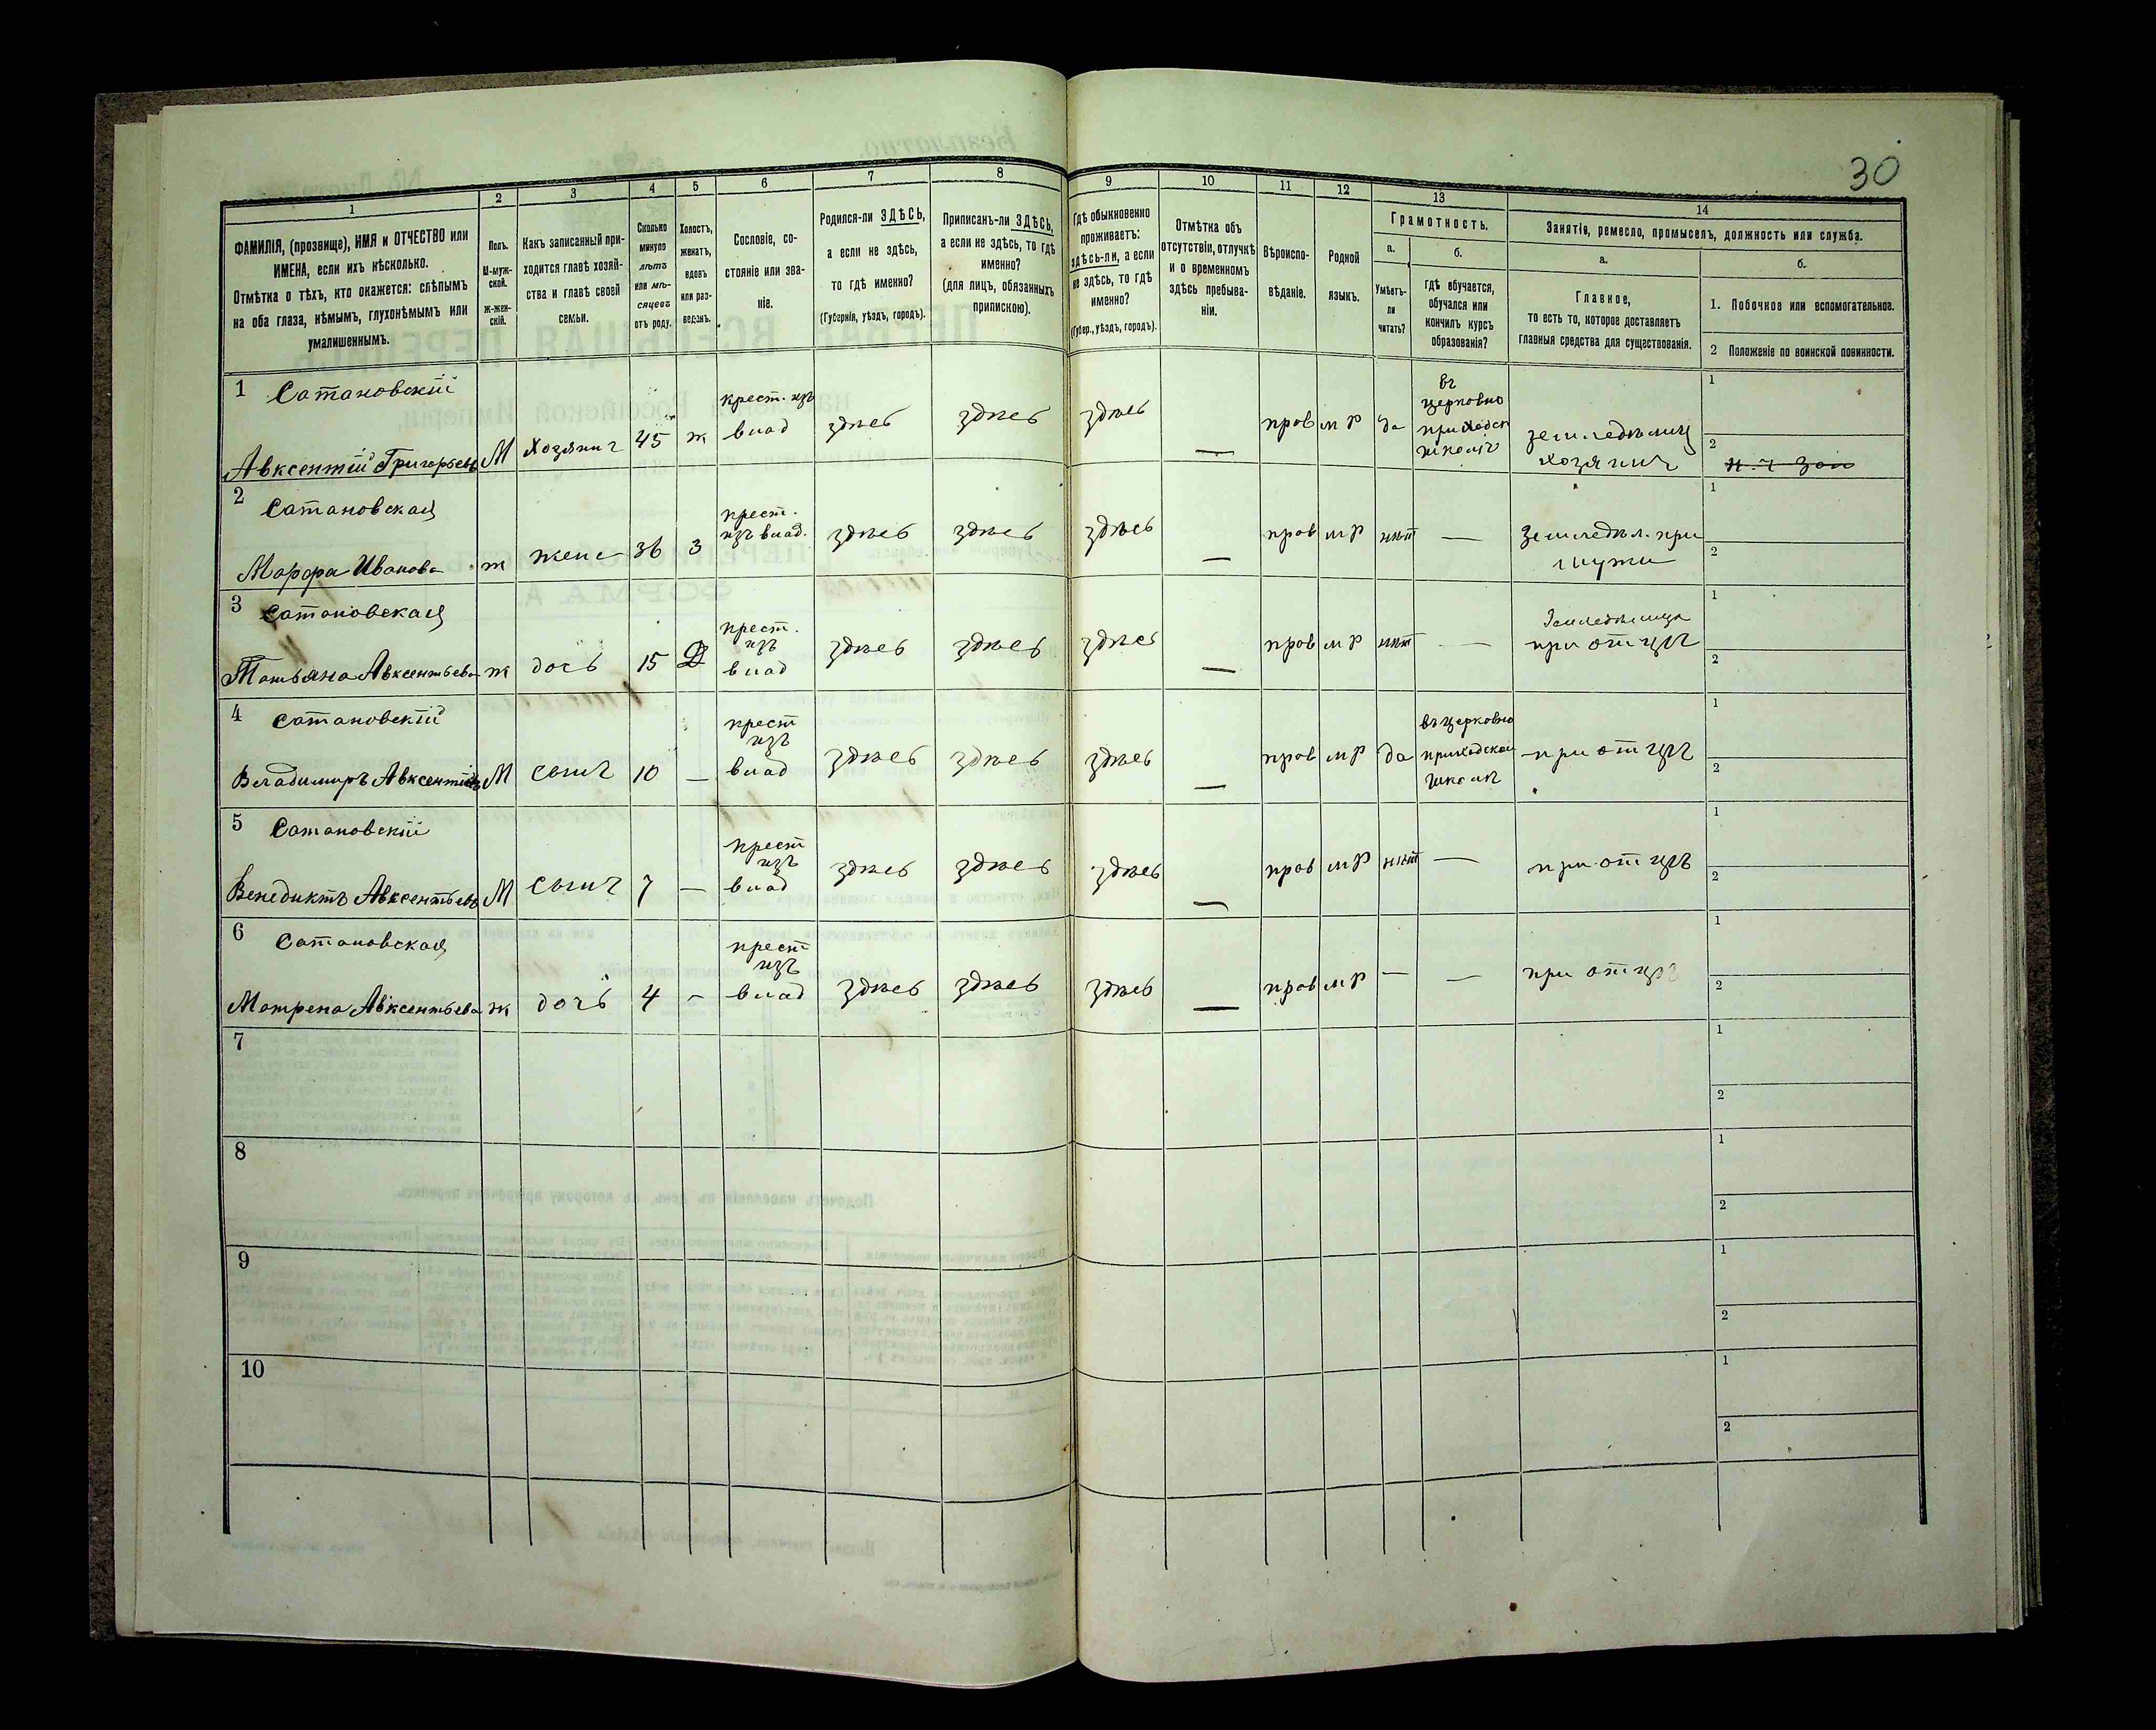 30
1
2
3
4
5
6
7
8
9
10
11
12
13
14
ФАМИЛІЯ, (прозвище), ИМЯ и ОТЧЕСТВО или
ИМЕНА, если ихъ нѣсколько.
Отмѣтка о тѣхъ, кто окажется: слѣпымъ
на оба глаза, нѣмымъ, глухонѣмымъ или
умалишеннымъ.
Полъ.
М-муж-
ской.
Ж-жен-
скій.
Какъ записанный при-
ходится главѣ хозяй-
ства и главѣ своей
семьи.
Сколько
минуло
лѣтъ
или мѣ-
сяцевъ
отъ роду.
Холостъ,
женатъ,
вдовъ
или раз-
веденъ.
Сословіе, со-
стояніе или зва-
ніе.
Родился-ли ЗДѢСЬ,
а если не здѣсь,
то гдѣ именно?
(Губернія, уѣздъ, городъ).
Приписанъ-ли ЗДѢСЬ,
а если не здѣсь, то гдѣ
именно?
(для лицъ, обязанныхъ
припискою).
Гдѣ обыкновенно
проживаетъ:
здѣсь-ли, а если
не здѣсь, то гдѣ
именно?
(Губер., уѣздъ, городъ).
Отмѣтка объ
отсутствіи, отлучкѣ
и о временномъ
здѣсь пребыва-
ніи.
Вѣроиспо-
вѣданіе.
Родной
языкъ.
Грамотность.
а.
Умѣетъ-
ли
читать?
б.
Гдѣ обучается,
обучался или
кончилъ курсъ
образованія?
Занятіе, ремесло, промыселъ, должность или служба.
а.
Главное,
то есть то, которое доставляетъ
главныя средства для существованія.
б.
1. Побочное или вспомогательное.
2 Положеніе по воинской повинности.
1 Сатановскій
Авксентій Григорьевъ
М
Хозяинъ
45
ж
крест. изъ
влад
здѣсь
здѣсь
здѣсь
—
прав
м Р
да
въ
церковно
приходск
школѣ
земледѣлец
хозяинъ
1
2
2 Сатановская
Марфа Иванова
ж
жена
36
З
крест.
изъ влад.
здѣсь
здѣсь
здѣсь
—
прав
м Р
нѣт
—
Земледѣл. при
мужи
1
2
3 Сатановская
Татьяна Авксентьева
ж
дочь
15
Д
крест.
изъ
влад
здѣсь
здѣсь
здѣсь
—
прав
м Р
нѣт
—
Земледѣлица
при отцѣ
1
2
4 Сатановскій
Владимиръ Авксентіевъ
М
сынъ
10
—
крест
изъ
влад
здѣсь
здѣсь
здѣсь
—
прав
м Р
да
въ церковно
приходской
школѣ
при отцѣ
1
2
5 Сатановскій
Венедиктъ Авксентьевъ
М
сынъ
7
—
крест
изъ
влад
здѣсь
здѣсь
здѣсь
—
прав
м Р
нѣт
—
при отцѣ
1
2
6 Сатановская
Матрена Авксентьева
ж
дочь
4
-
крест
изъ
влад
здѣсь
здѣсь
здѣсь
—
прав
м Р
—
—
при отцѣ
1
2
7
1
2
8
1
2
9
1
2
10
1
2